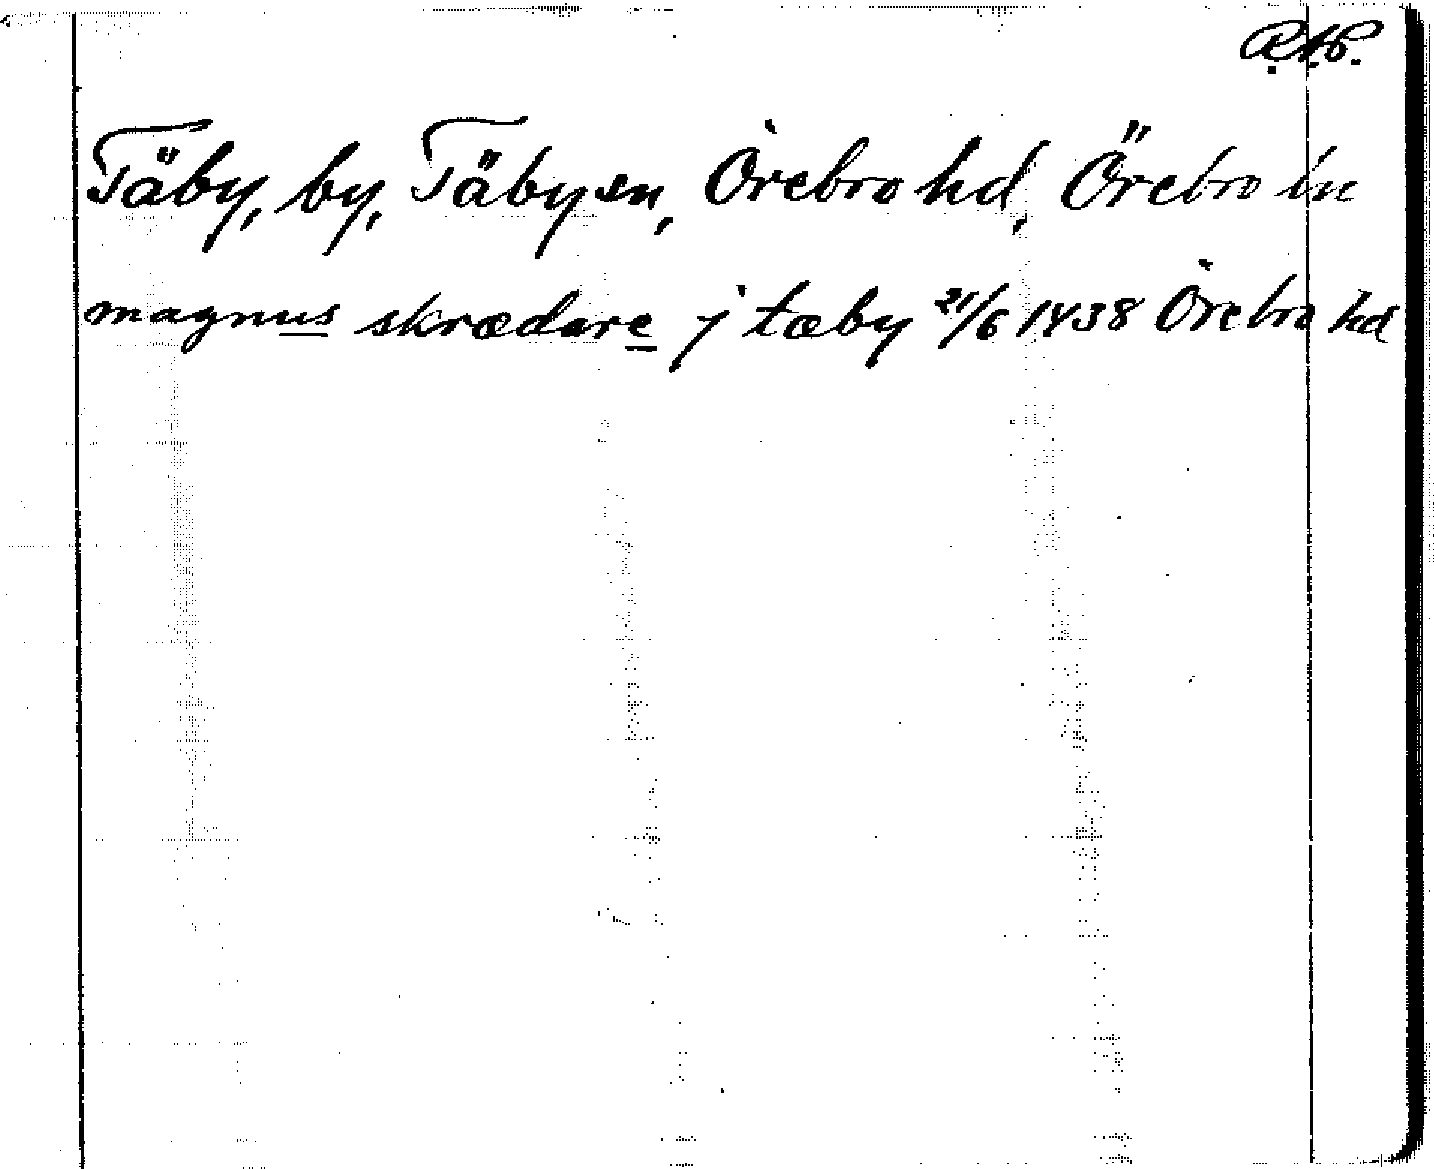 R.A.P.
Täby, by, Täby sn, Örebro hd, Örebro ln
magnus skrædare j tæby 21/6 1438 Örebro hd